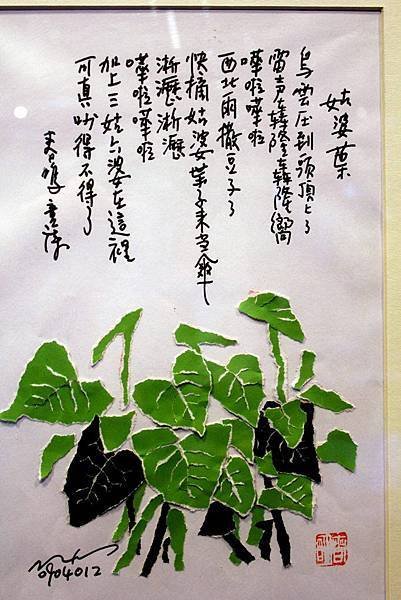 姑婆葉
烏雲压到頭頂上了
雷声轟隆轟隆嚮
嘩啦嘩啦
西北雨撒豆子了
快摘姑婆葉子来当傘
淅瀝淅瀝
嘩啦嘩啦
加上三姑六婆在這裡
可真吵得不得了
0904012